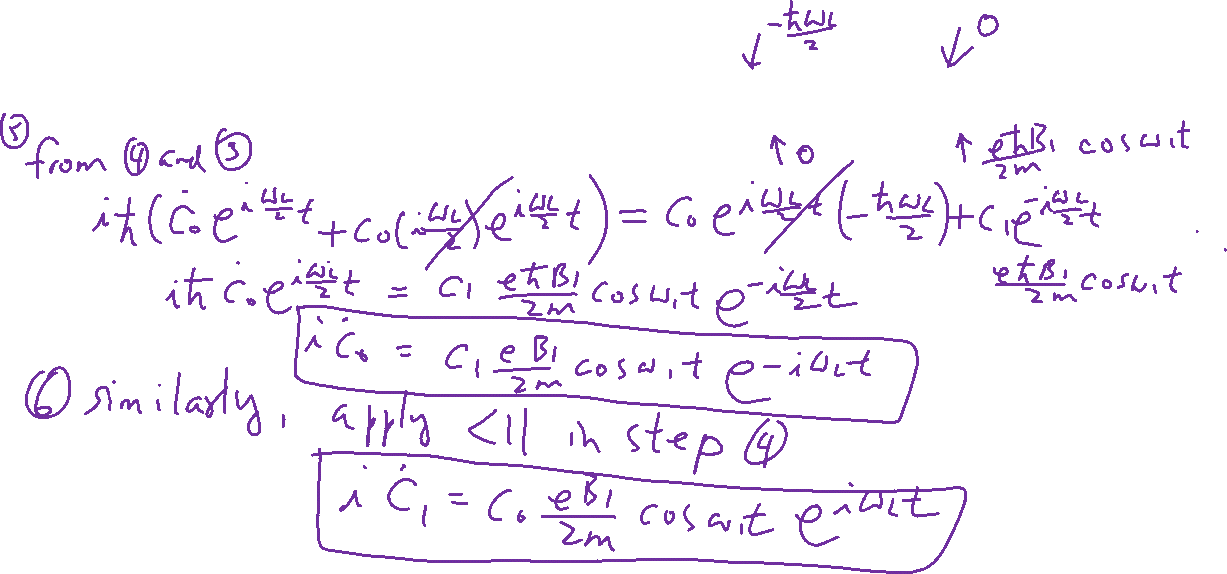 ↙ -ħωL/2 ↙ 0
⑤ from ④ and ③ ↑ 0 ↑ eħB₁/2m cos ω₁t
iħ(Ċ₀ e^{i ωL/2 t} + C₀(i ωL/2) e^{i ωL/2 t}) = C₀ e^{i ωL/2 t} (-ħωL/2) + C₁ e^{-i ωL/2 t} eħB₁/2m cos ω₁t
iħ Ċ₀ e^{i ωL/2 t} = C₁ eħB₁/2m cos ω₁t e^{-i ωL/2 t}
i Ċ₀ = C₁ e B₁/2m cos ω₁t e^{-iωLt}
⑥ similarly, apply <1| in step ④
i Ċ₁ = C₀ eB₁/2m cos ω₁t e^{iωLt}